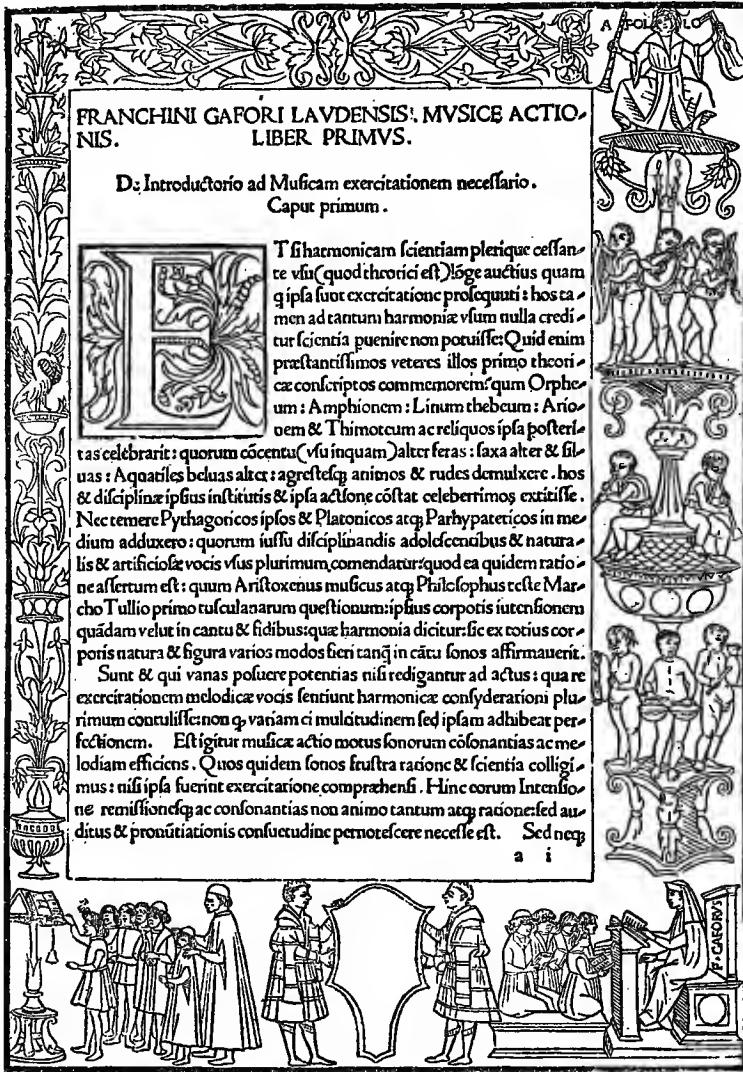 A POL LO
FRANCHINI GAFORI LAVDENSIS. MVSICE ACTIO-
NIS. LIBER PRIMVS.
De Introductorio ad Muſicam exercitationem neceſſario.
Caput primum.
ET ſi harmonicam ſcientiam plerique ceſſan-
te vſu (quod theorici eſt) lõge auctius quam
q ipſa ſunt exercitatione proſequuti: hos ta-
men ad tantum harmoniæ vſum nulla credi-
tur ſcientia puenire non potuiſſe: Quid enim
præſtantiſſimos veteres illos primo theori-
cæ conſcriptos commemorem: qum Orphe-
um: Amphionem: Linum thebeum: Ario-
nem & Thimoteum ac reliquos ipſa poſteri-
tas celebrarit: quorum cõcentu (vſu inquam) alter feras: ſaxa alter & ſil-
uas: Aquatiles beluas alter: agreſteſq; animos & rudes demulxere. hos
& diſciplinæ ipſius inſtitutis & ipſa actione cõſtat celeberrimos extitiſſe.
Nec temere Pythagoricos ipſos & Platonicos atq; Parhypatericos in me-
dium adduxero: quorum iuſſu diſciplinandis adoleſcentibus & natura-
lis & artificioſæ vocis vſus plurimum comendatur: quod ea quidem ratio-
ne aſſertum eſt: quum Ariſtoxenus muſicus atq; Philoſophus teſte Mar-
cho Tullio primo tuſculanarum queſtionum: ipſius corporis intenſionem
quãdam velut in cantu & fidibus: quæ harmonia dicitur: ſic ex totius cor-
poris natura & figura varios modos fieri tanq̃ in cãtu ſonos affirmauerit.
Sunt & qui vanas poſuere potentias niſi redigantur ad actus: qua re
exercitationem melodicæ vocis ſentiunt harmonicæ conſyderationi plu-
rimum contuliſſe: non q variam ei multitudinem ſed ipſam adhibeat per-
fectionem. Eſt igitur muſicæ actio motus ſonorum cõſonantias ac me-
lodiam efficiens. Quos quidem ſonos fruſtra ratione & ſcientia colligi-
mus: niſi ipſa fuerint exercitatione compræhenſi. Hinc eorum Intenſio-
ne remiſſioneſq; ac conſonantias non animo tantum atq; ratione: ſed au-
ditus & pronũtiationis conſuetudine pernoteſcere neceſſe eſt. Sed neq;
a i
F. GAFORVS